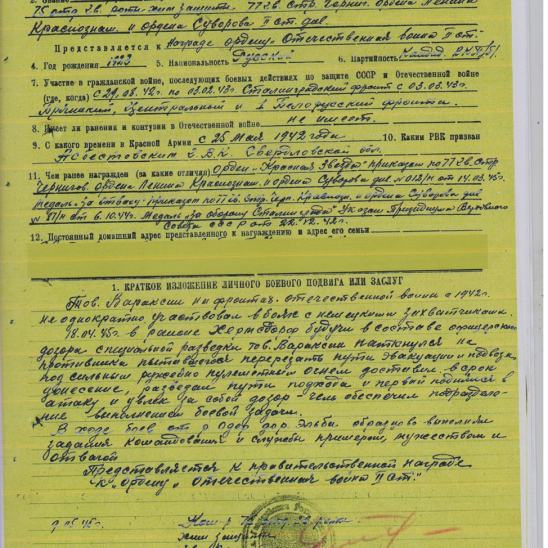 75 отд. гв. роты хим защиты 77 гв. Стр. Черниг. ордена Ленина
Краснознам. и ордена Суворова II ст. див.
Представляется к награде ордену Отечественная война II ст.
4. Год рождения 1923 5. Национальность Русский 6. Партийность
7. Участие в гражданской войне, последующих боевых действиях по защите СССР и Отечественной войне
(где, когда) с 29.08.42г. по 03.03.43г. Сталинградский фронт с 03.03.43г.
Брянский, Центральный и 1 Белорусский фронты.
8. Имеет ли ранения и контузии в Отечественной войне не имеет.
9. С какого времени в Красной Армии с 25 мая 1942 года 10. Каким РВК призван
Асбестовским Г.В.К. Свердловской обл.
11. Чем ранее награжден (за какие отличия) Орден „Красная Звезда" приказ по 77 гв. стр.
Чернигов. ордена Ленина Краснознам. и ордена Суворова див № 012/н от 14.03.45г.
медаль „За отвагу" приказ по 77 гв. стр. Черн. Краснозн. и ордена Суворова див
№ /н от 6.10.44г. Медаль „За оборону Сталинграда" Указ Президиума Верховного
Совета СССР от 22.12.42г.
12. Постоянный домашний адрес представленного к награждению и адрес его семьи
1. КРАТКОЕ ИЗЛОЖЕНИЕ ЛИЧНОГО БОЕВОГО ПОДВИГА ИЛИ ЗАСЛУГ
Тов. Вараксин на фронтах отечественной войны с 1942г.
неоднократно участвовал в боях с немецкими захватчиками.
18.04.45г. в районе будучи в составе офицерского
дозора специальной разведки тов. Вараксин наткнулся на
противника пытавшегося перерезать пути эвакуации и подвоза
под сильным ружейно пулеметным огнем доставил в срок
донесение, разведал пути подхода и первый поднялся в
атаку и увлек за собой дозор чем обеспечил подразделе-
ние выполнением боевой задачи.
В ходе боев от р. Одер до р. Эльбы образцово выполнял
задания командования и служил примером мужества и
отваги
Представляется к правительственной награде
к „Ордену" Отечественная война II ст."
хим защиты